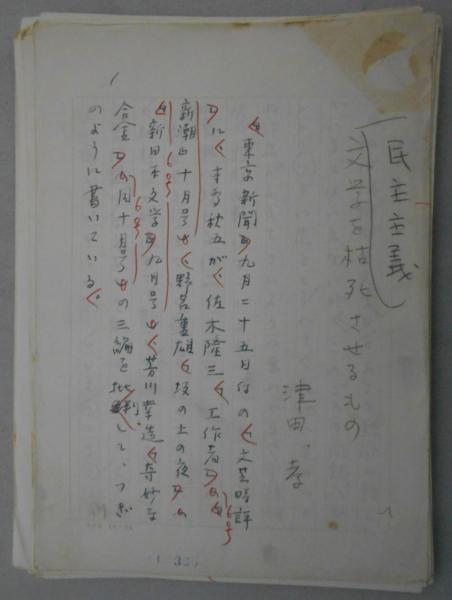 民主主義
文学を枯死させるもの
津田 孝
東京新聞 九月二十五日付の 文芸時評
に 本多秋五が 佐木隆三 工作者
新潮 十月号 野呂重雄 坂の上の夜
新日本文学 九月号 芳川幸造 奇妙な
合金 同十月号 の三編を批判して、つぎ
のように書いている。